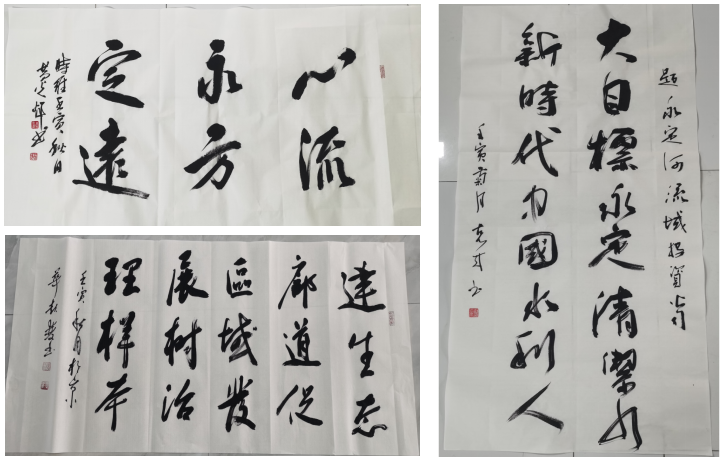 心永定
流方遠
時在壬寅秋月
建生态
廊道促
區域發
展樹治
理樣本
壬寅秋月於京
題永定河流域投資公司
大目標永定清潔水
新時代中國水利人
壬寅菊月